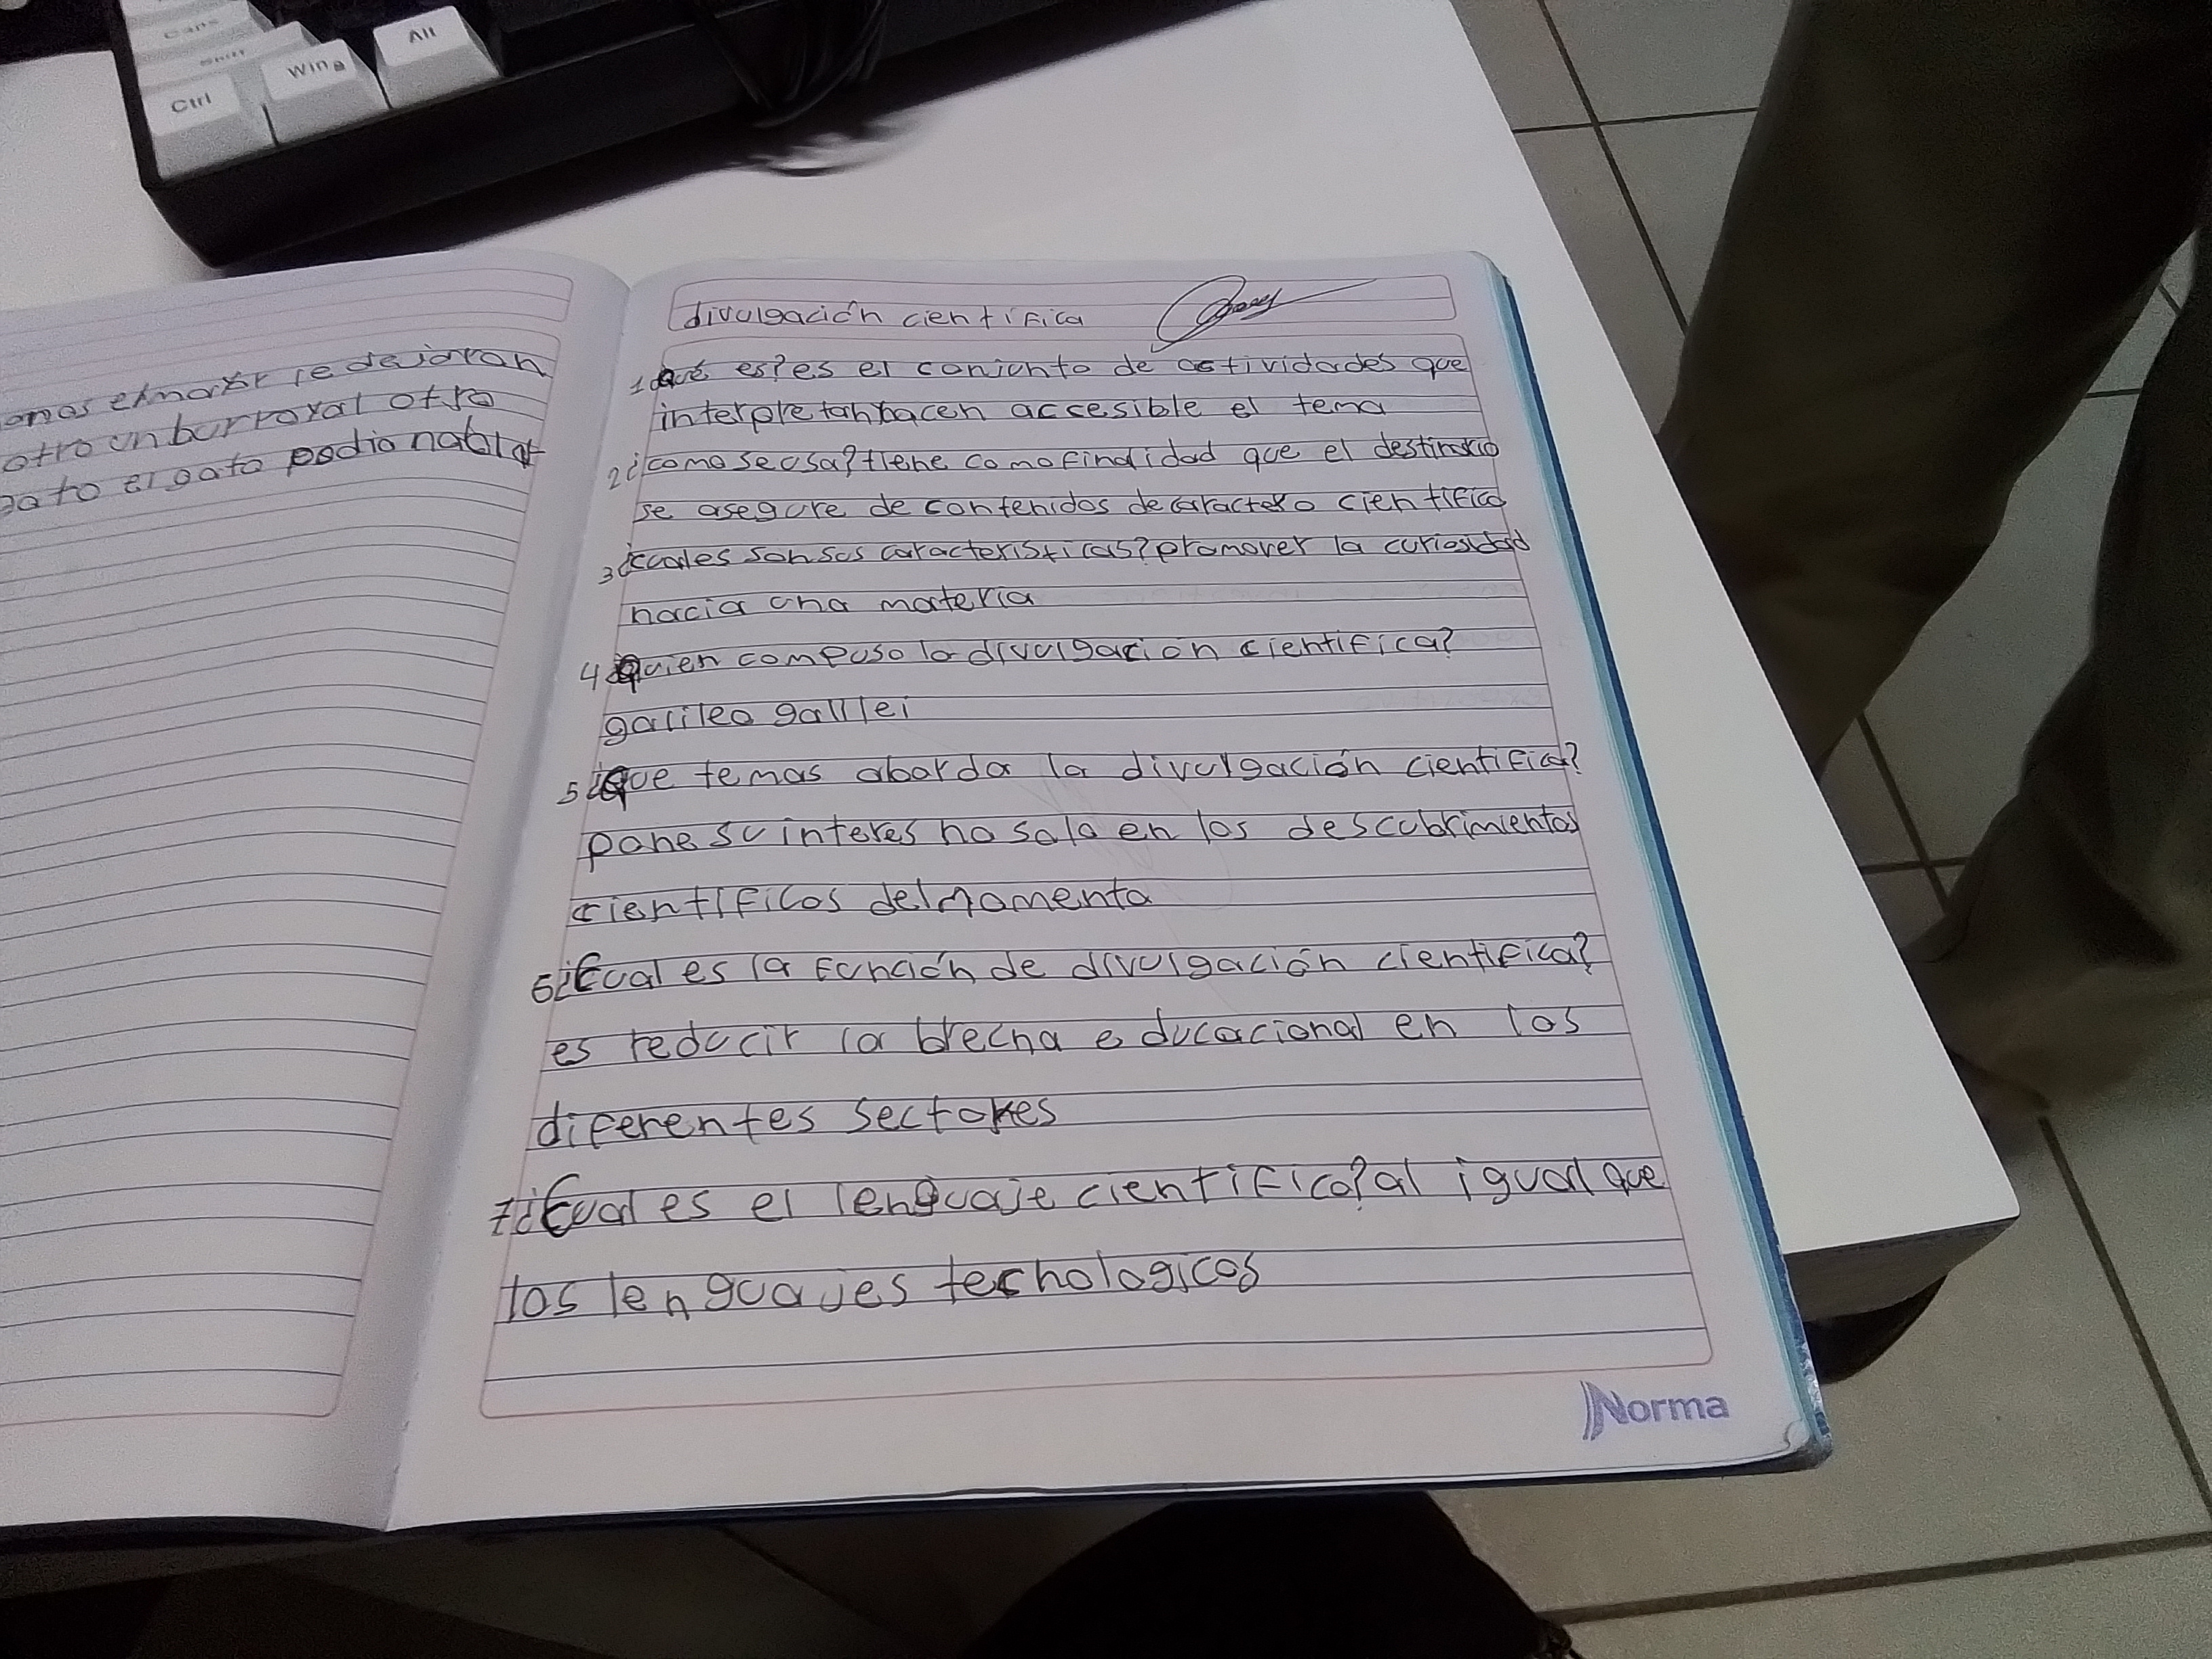 Caps
Shift
Ctrl
Win
Alt
se dejaron
otro un burro y al otro
gato el gato podia hablar
divulgación científica
1¿Qué es? es el conjunto de actividades que
interpretan hacen accesible el tema
2¿como se usa? tiene como finalidad que el destinario
se asegure de contenidos de caractero cientifico
3¿cuales son sus caracteristicas? promover la curiosidad
hacia una materia
4¿Quien compuso la divulgacion cientifica?
galileo galilei
5¿Que temas aborda la divulgación cientifica?
pone su interes no solo en los descubrimientos
cientificos del momento
6¿Cual es la función de divulgación cientifica?
es reducir la brecha educacional en los
diferentes sectores
7¿Cual es el lenguaje cientifico? al igual que
los lenguajes tecnologicos
Norma